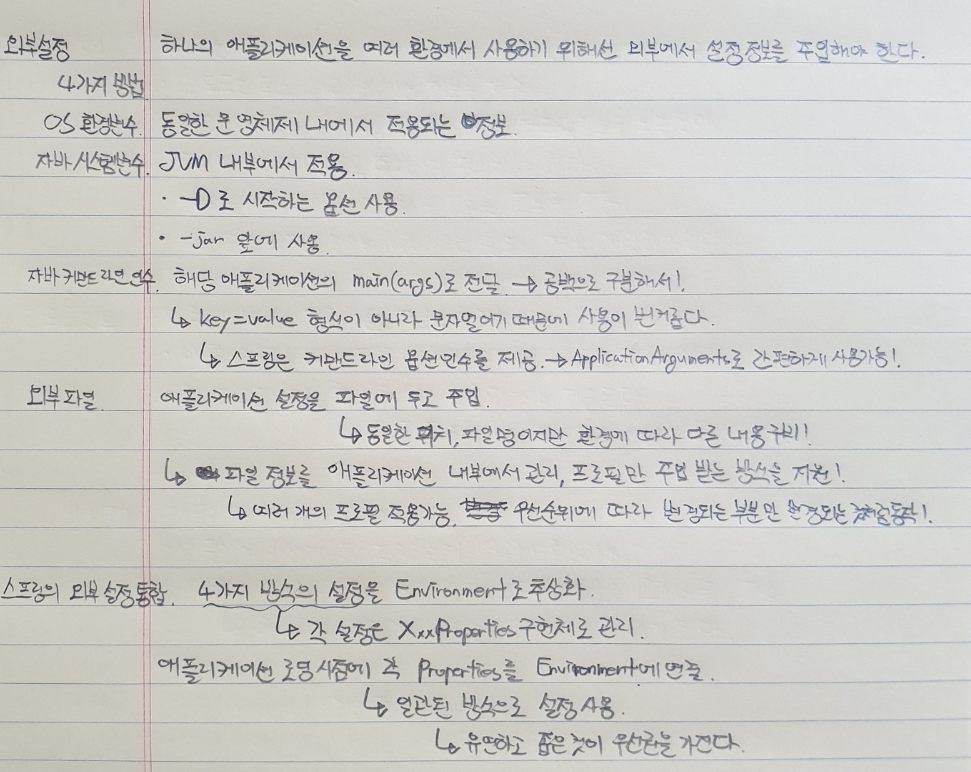 외부설정 하나의 애플리케이션을 여러 환경에서 사용하기 위해선 외부에서 설정정보를 주입해야 한다.
4가지 방법
OS 환경변수. 동일한 운영체제 내에서 적용되는 정보.
자바 시스템변수. JVM 내부에서 적용.
· -D로 시작하는 옵션 사용.
· -jar 앞에 사용.
자바 커맨드라인 인수. 해당 애플리케이션의 main(args)로 전달 → 공백으로 구분해서!
↳ key=value 형식이 아니라 문자열이기 때문에 사용이 번거롭다.
↳ 스프링은 커맨드라인 옵션인수를 제공. → ApplicationArguments로 간편하게 사용가능!
외부파일. 애플리케이션 설정을 파일에 두고 주입.
↳ 동일한 위치, 파일명이지만 환경에 따라 다른 내용 구비!
↳ 파일 정보를 애플리케이션 내부에서 관리, 프로필만 주입 받는 방식을 지원!
↳ 여러 개의 프로필 적용가능. 우선순위에 따라 변경되는 부분만 변경되는 것처럼 동작!
스프링의 외부설정통합. 4가지 방식의 설정을 Environment로 추상화.
↳ 각 설정은 XxxProperties 구현체로 관리.
애플리케이션 로딩시점에 각 Properties를 Environment에 연결.
↳ 일관된 방식으로 설정 사용.
↳ 유연하고 좁은것이 우선권을 가진다.